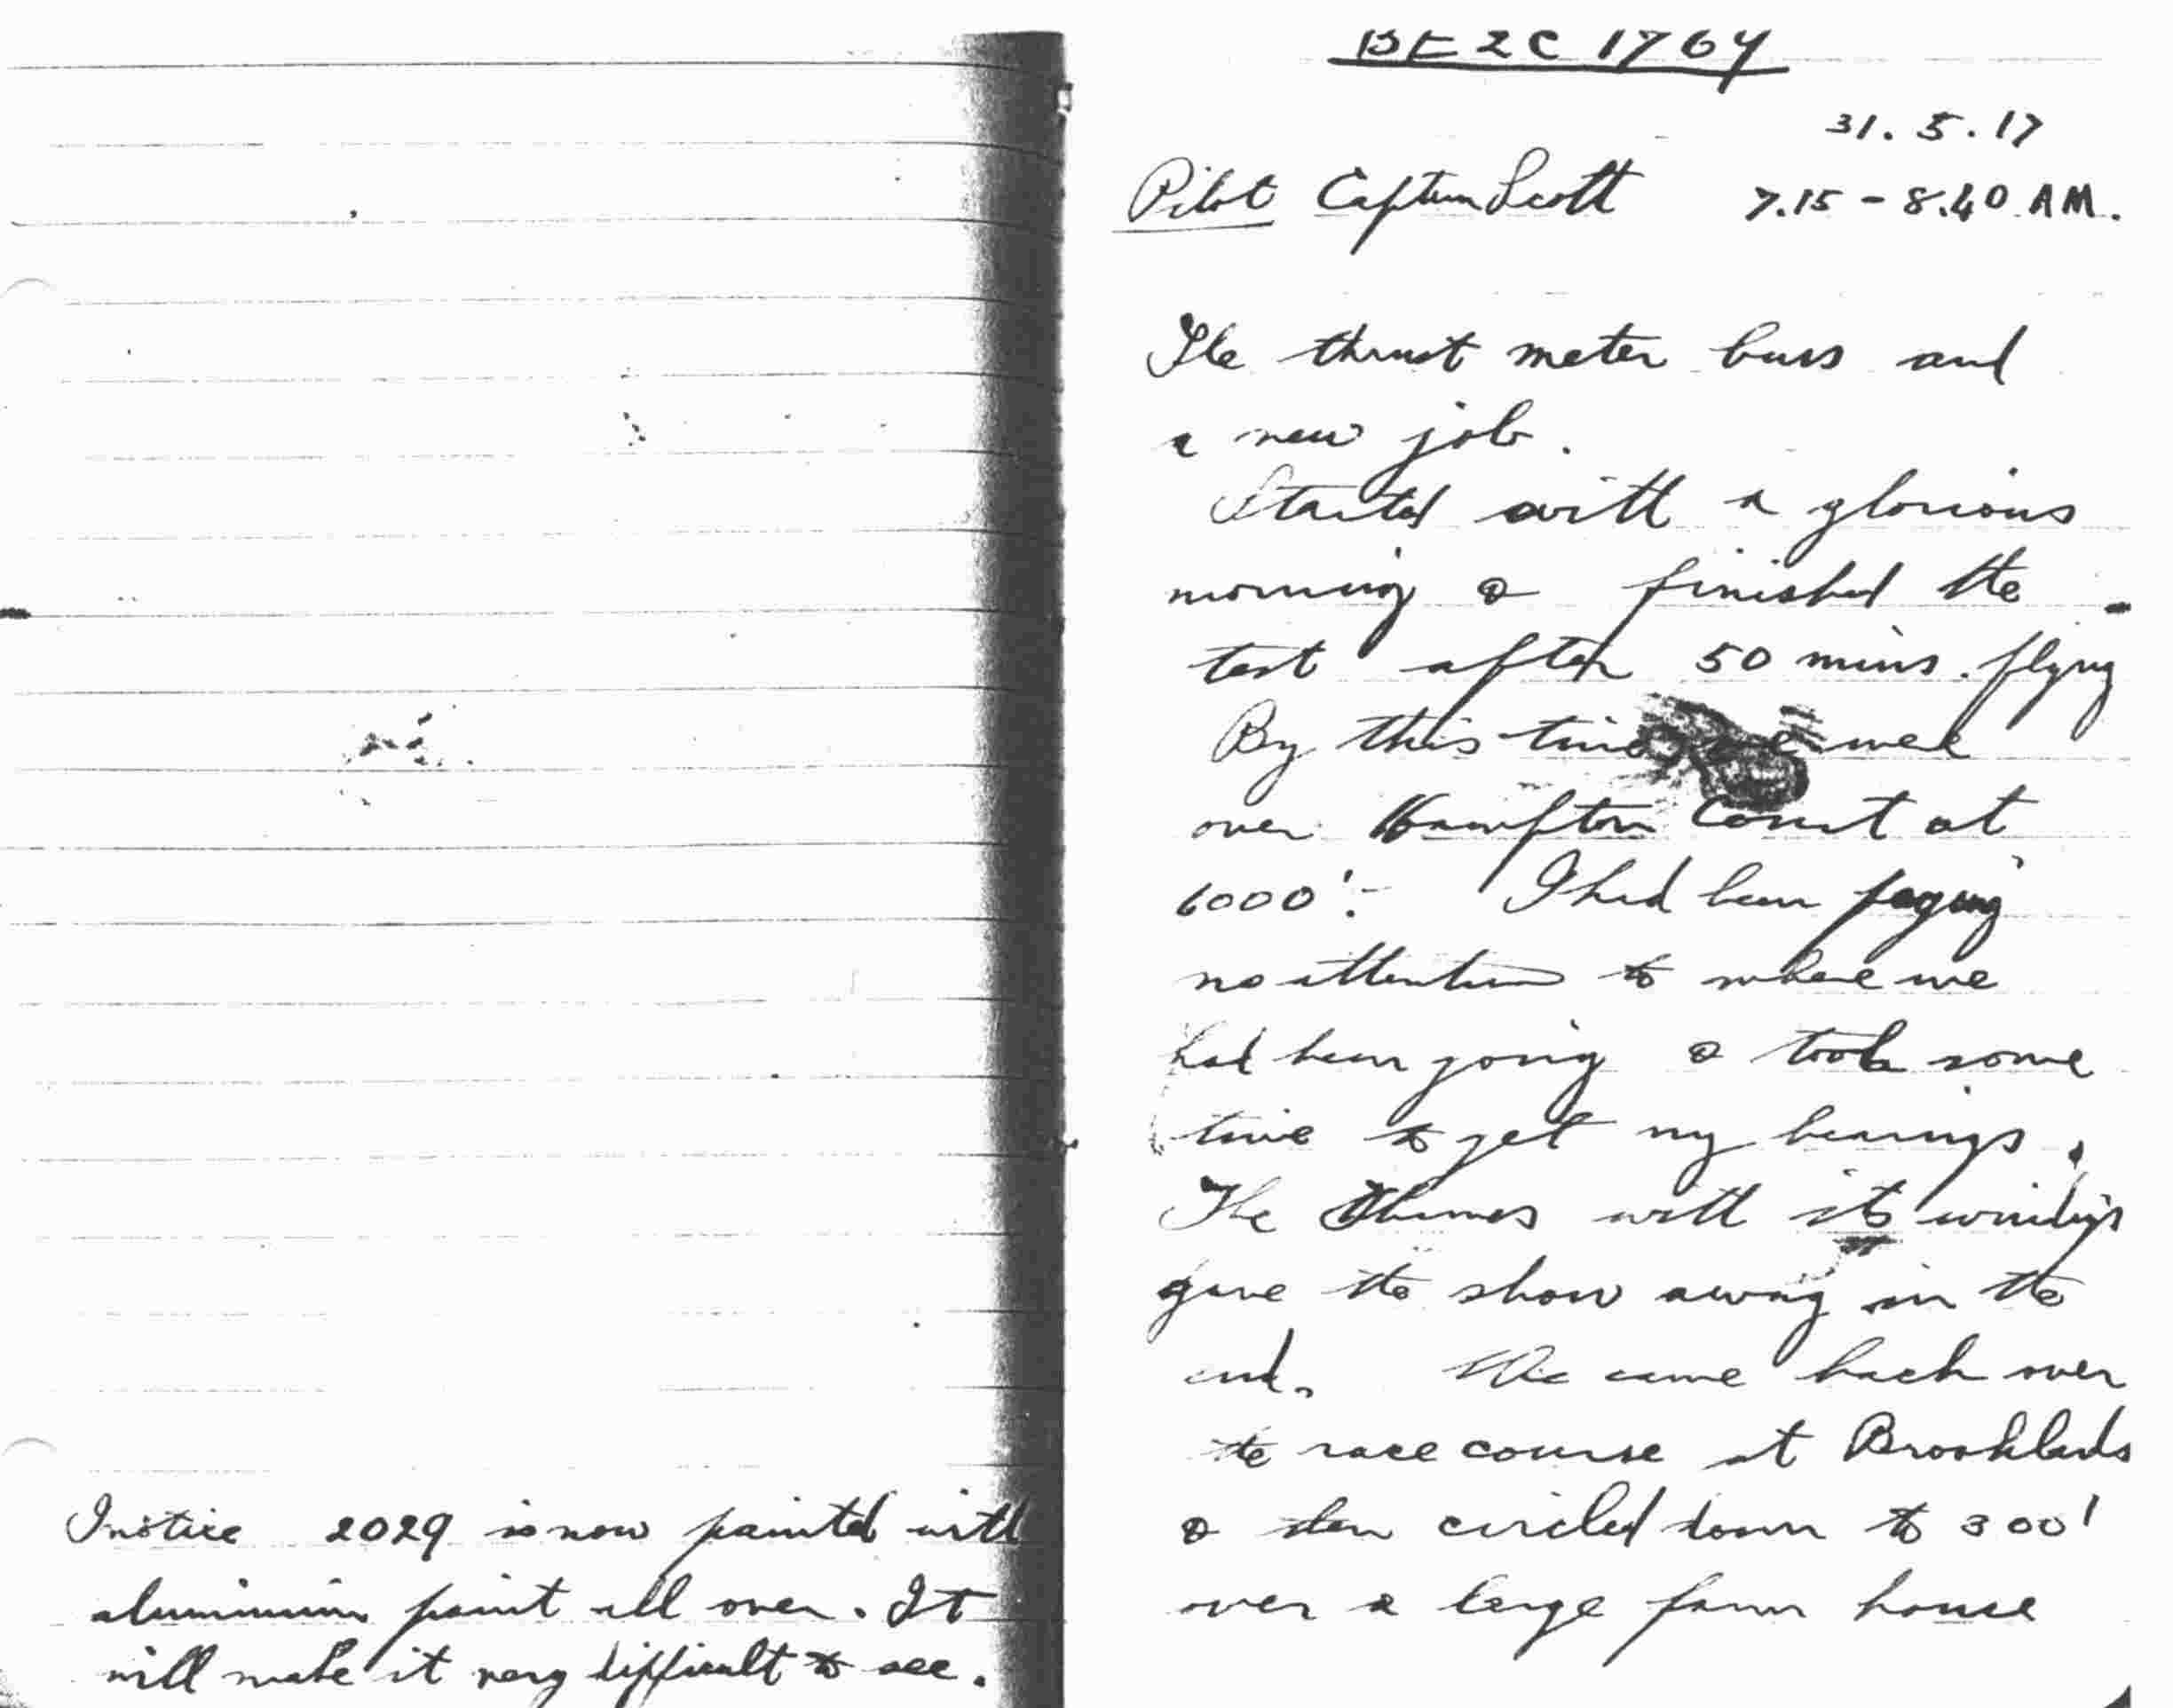 I notice 2029 is now painted with
aluminium paint all over. It
will make it very difficult to see.
BE2C 1764
31.5.17
Pilot Captain Scott 7.15 - 8.40 AM.
The thrust meter buss and
a new job.
Started with a glorious
morning & finished the
test after 50 mins. flying
By this time we were
over Hampton Court at
6000'. I had been paying
no attention to where we
had been going & took some
time to get my bearings.
The Thames with its windings
gave the show away in the
end. We came back over
the race course at Brooklands
& then circled down to 300'
over a large farm house